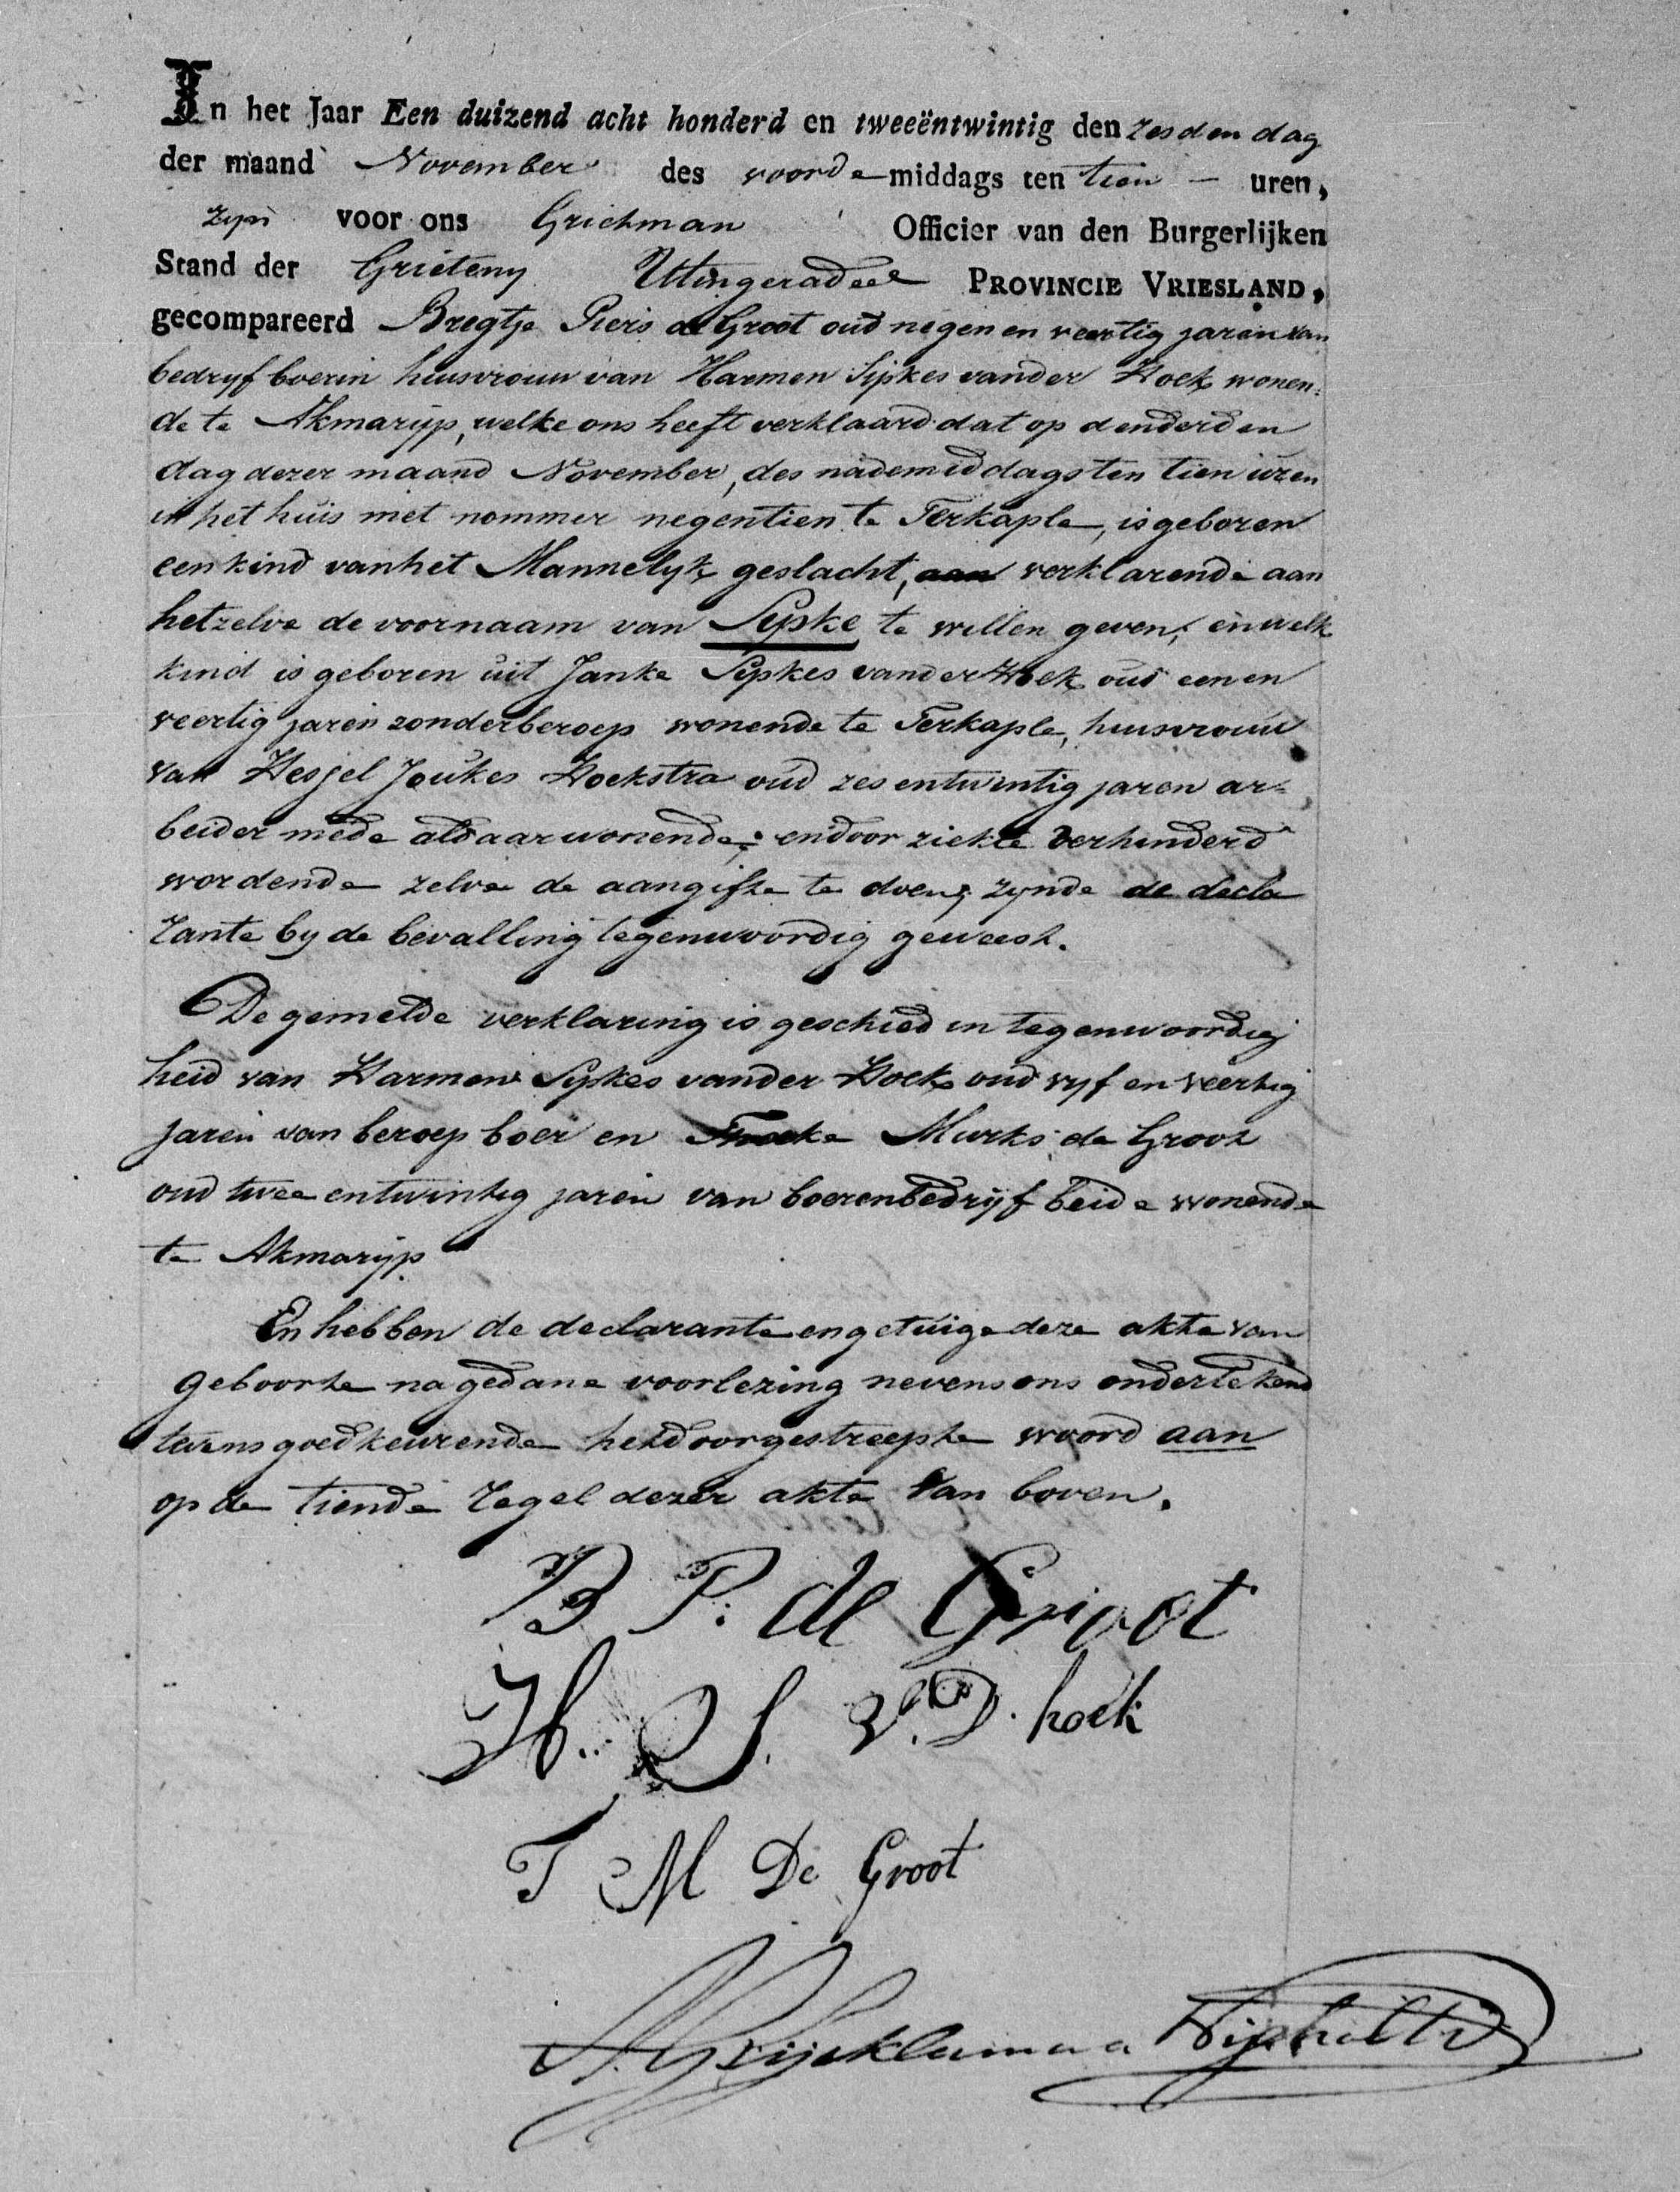 In het Jaar Een duizend acht honderd en tweeëntwintig den zesden dag
der maand November des voorde middags ten tien – uren,
zyn voor ons Grietman Officier van den Burgerlijken
Stand der Grieteny Utingeradeel PROVINCIE VRIESLAND,
gecompareerd Bregtje Piers de Groot oud negen en veertig jaren van
bedryf boerin huisvrouw van Harmen Sipkes vander Hoek wonen-
de te Akmaryp, welke ons heeft verklaard dat op den derden
dag dezer maand November, des nademiddags ten tien uren
in het huis met nommer negentien te Terkaple, is geboren
een kind van het Mannelyk geslacht, aan verklarende aan
hetzelve de voornaam van Sipke te willen geven, en welk
kind is geboren uit Janke Sipkes vander Hoek oud een en
veertig jaren zonder beroep wonende te Terkaple, huisvrouw
van Hesjel Joukes Hoekstra oud zes entwintig jaren ar-
beider mede aldaar wonende; en door ziekte verhinderd
wordende zelve de aangifte te doen, zynde de decla
rante by de bevalling tegenwoordig geweest.
De gemelde verklaring is geschied in tegenwoordig
heid van Harmen Sipkes vander Hoek oud vyf en veertig
jaren van beroep boer en Murks de Groot
oud twee entwintig jaren van boerenbedrijf beide wonende
te Akmaryp.
En hebben de declarante en getuige deze akte van
geboorte na gedane voorlezing nevens ons ondertekend
tevens goedkeurende het doorgestreepte woord aan
op de tiende regel dezer akte van boven.
B P. de Groot
H. S. V. D. hoek
T M De Groot